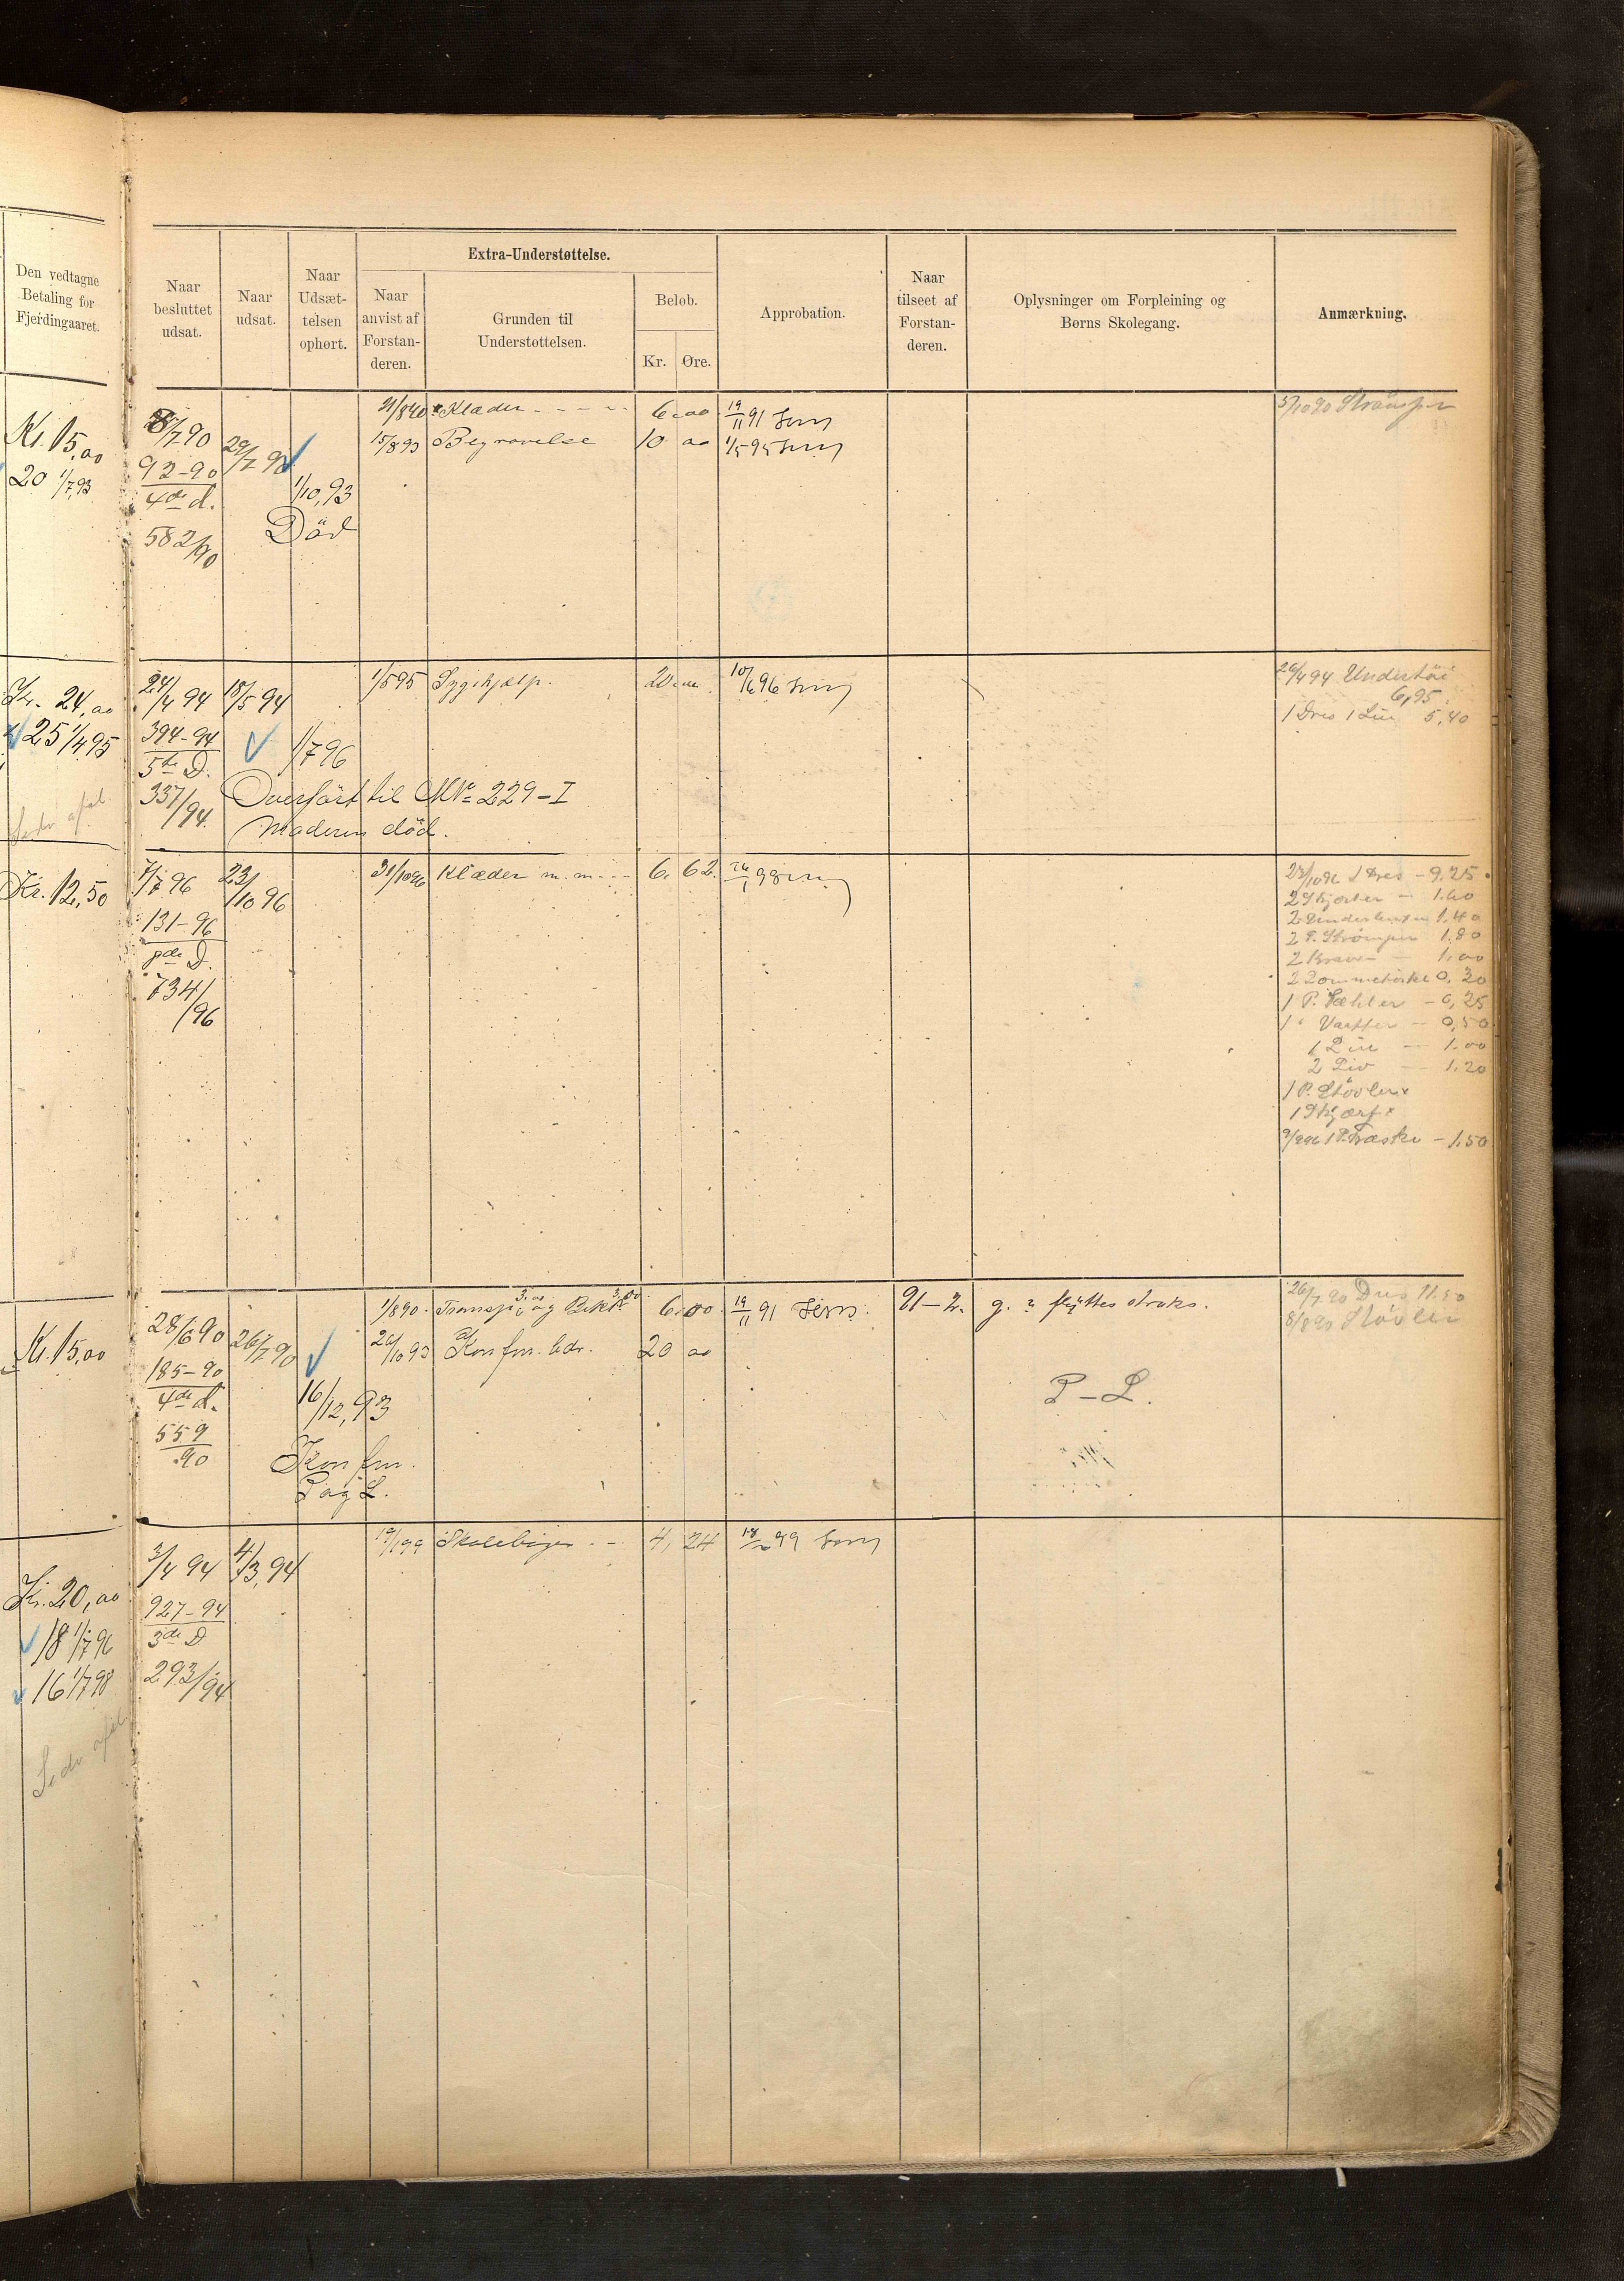 Den vedtagne
Betaling for
Fjerdingaaret.
Naar
besluttet
udsat.
Naar
udsat.
Naar
Udsæt-
telsen
ophørt.
Extra-Understøttelse.
Naar
anvist af
Forstan-
deren.
Grunden til
Understøttelsen.
Beløb.
Kr.
Øre.
Approbation.
Naar
tilseet af
Forstan-
deren.
Oplysninger om Forpleining og
Børns Skolegang.
Anmærkning.
Kr. 15,00
20 1/7,93
/7 90
92-90
4de d.
582/90
29/7 90
1/10,93
Död
Klæder
6.00
19/11 91
15/8 93 Begravelse
10 00
5/10 90 Strømper
Kr. 24,00
25 1/4 95
24/4 94
394-94
5te D.
337/94.
18/5 94
1/7 96
Overført til MNr 229-I
Moderen död.
1/5 95 Sygehjælp.
20
10/6 96
26/4 94 Undertöi
6,95
1 Dres 1 Lue 5,40
Kr. 12,50
7/7 96
131-96
D.
734/96
23/10 96
31/10 96 Klæder m. m.
6. 62.
23/10 96 1 Dres - 9,25
2 Skjorter - 1.60
2 Underbuxer 1.40
2 P. Strømper 1.80
2 Kraver - 1.00
2 Lommetørkl 0,30
1 P. Sæhler - 0,25
1 " Vaatter - 0,50
1 Lue - 1.00
2 Liv - 1.20
1 P. Støvler x
1 Skjærf x
1 P. Træsko - 1.50
Kr. 15,00
28/6 90
185-90
4de d.
559
90
26/7 90
16/12,93
Konfm.
P og L.
1/8 90. Transp. 3.00 og Bekl. 3.00
6.00
19/11 91
91-2.
g. 2 flyttes straks.
26/10 93 Konfm. hdr.
20 00
P-L.
26/7 90 Dres 11.50
8/8 90 Støvler
Kr. 20,00
18 1/7 96
16 1/7 98
3/4 94
927-94
3de D
293/94
4/3,94
19/1 99 Skolebøger
4, 24